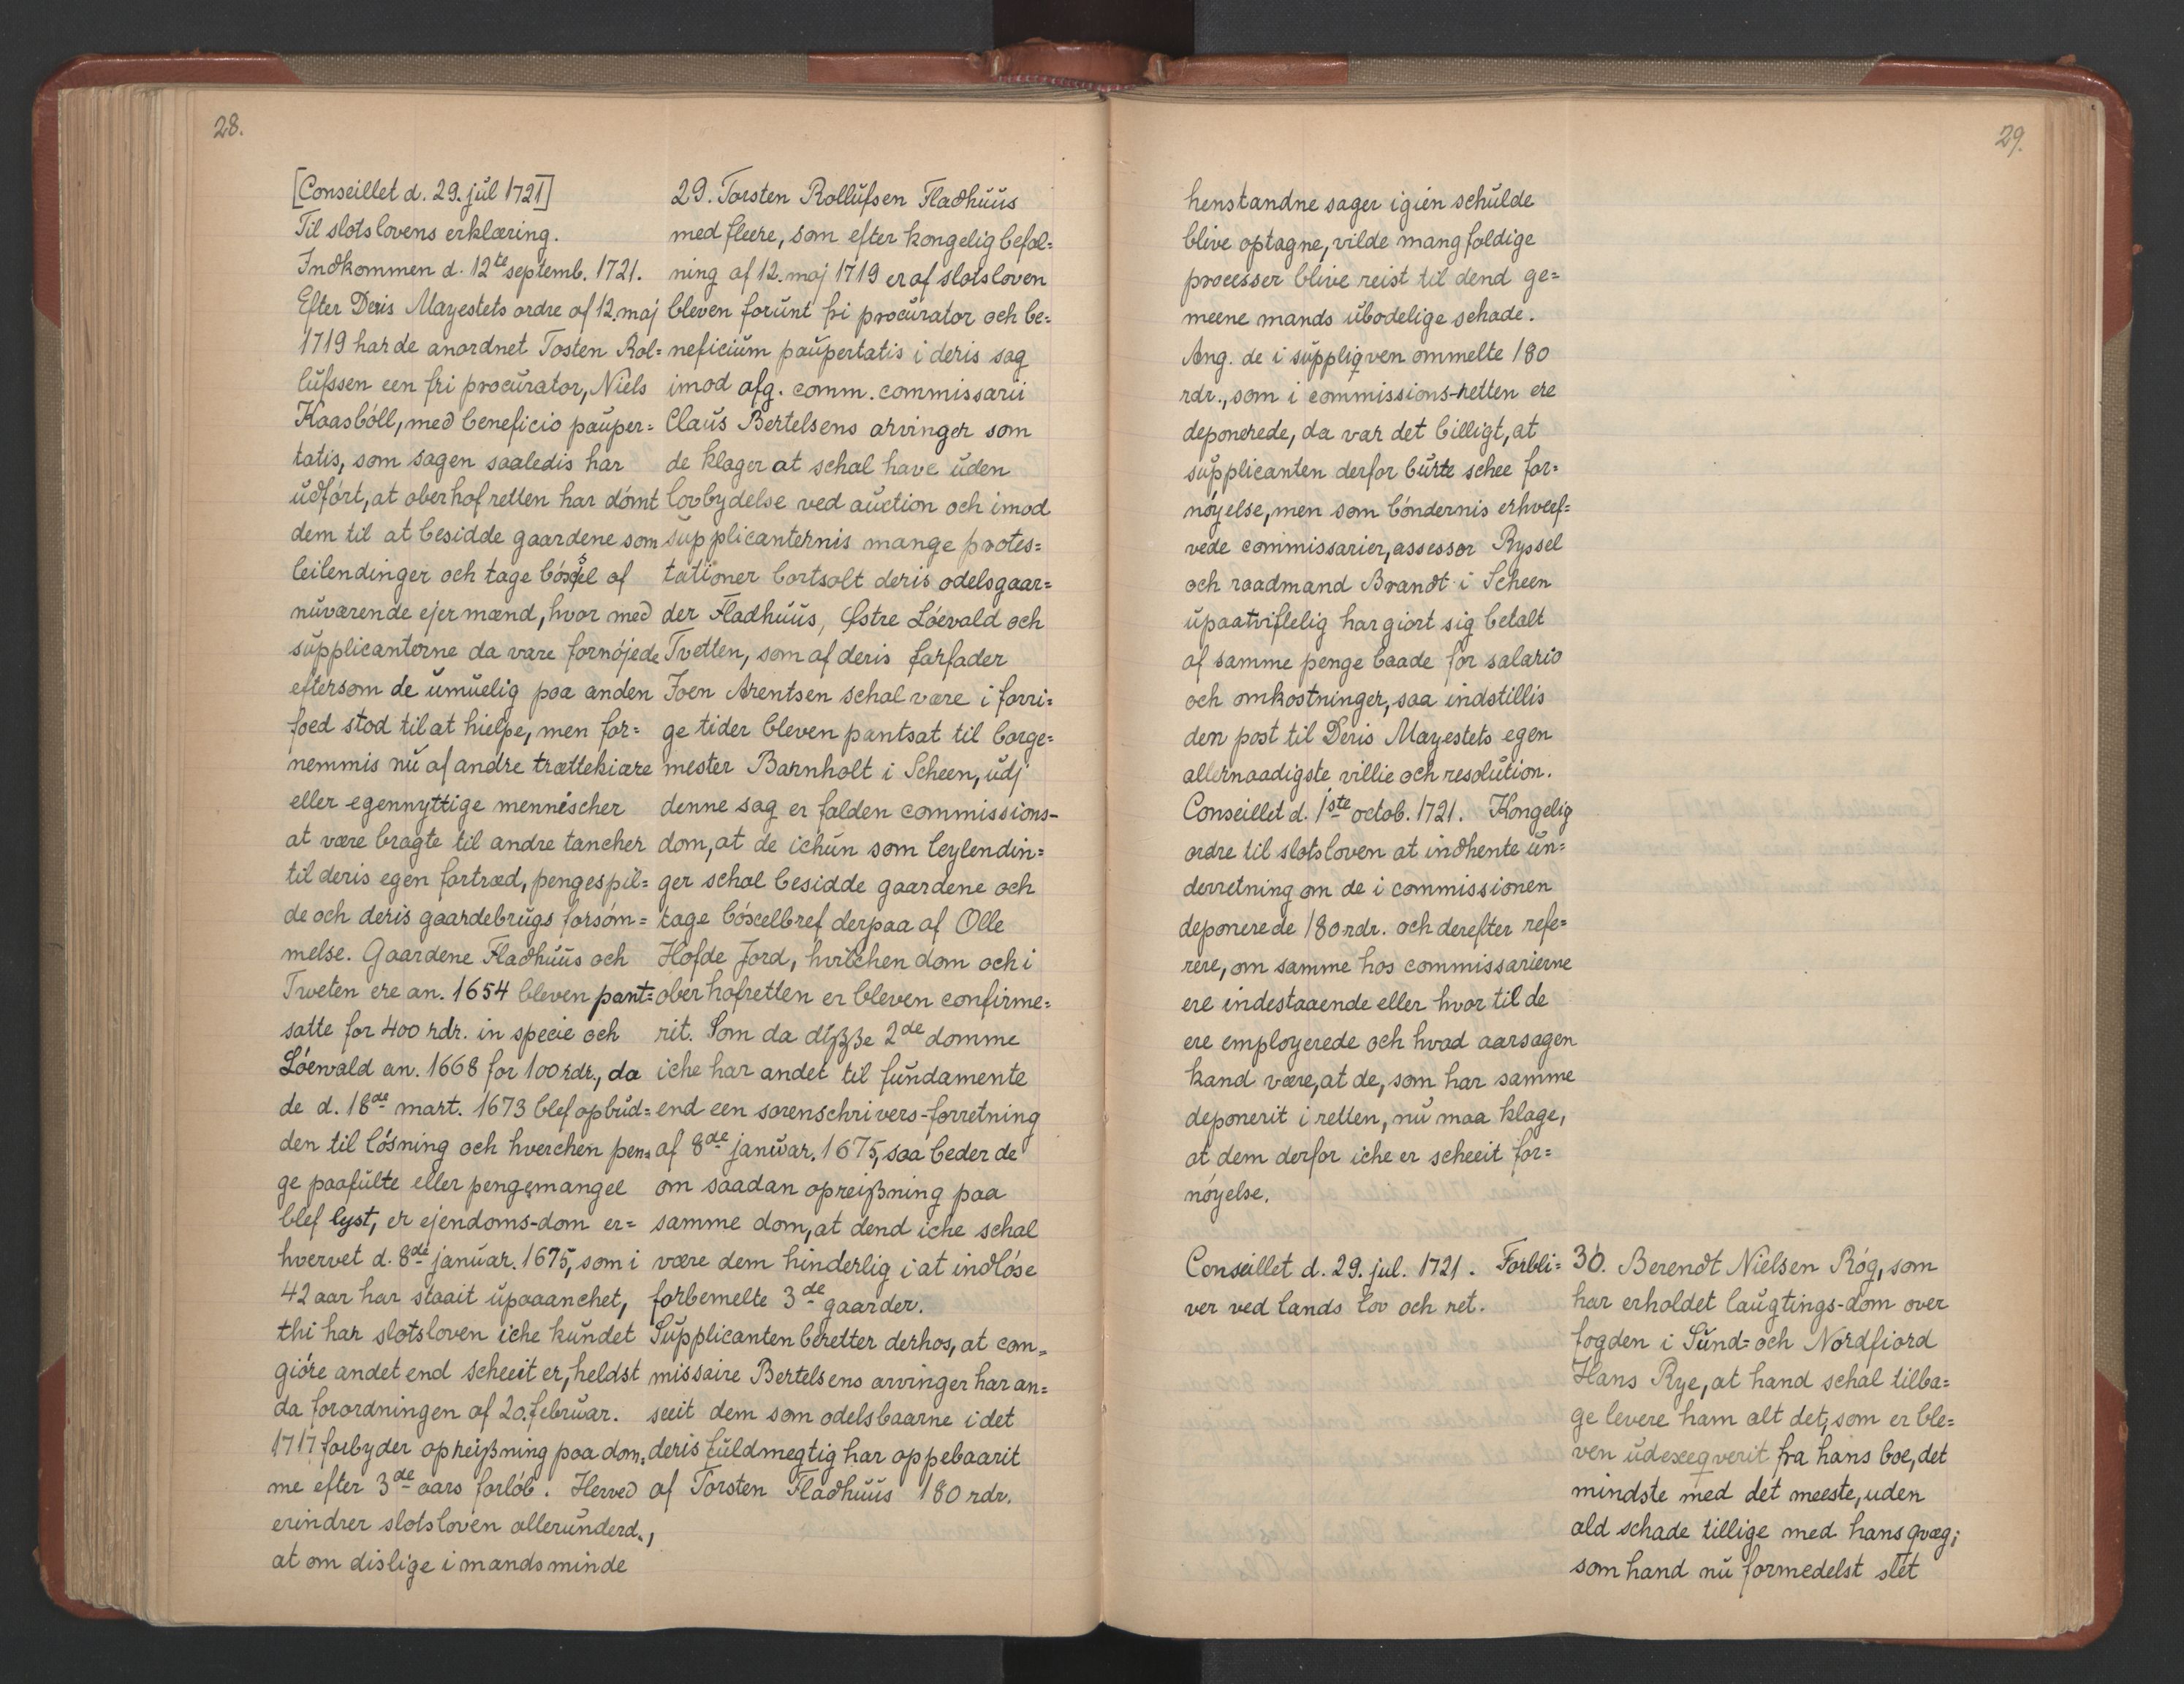 28.
[Conseillet d. 29. jul 1721]
Til slotslovens erklæring.
Indkommen d. 12te septemb. 1721.
Efter Deris Mayestets ordre af 12. maj
1719 har de anordnet Tosten Rol=
lufssen een fri procurator, Niels
Kaasbóll, med beneficio pauper=
tatis, som sagen saaledis har
udfórt, at oberhofretten har dómt
dem til at besidde gaardene som
leilendinger och tage bóxsel af
nuværende ejermænd, hvor med
supplicanterne da vare fornójede
eftersom de umuelig paa anden
foed stod til at hielpe, men for=
nemmis nu af andre trættekiære
eller egennyttige mennischer
at være bragte til andre tancher
til deris egen fortræd, pengespil=
de och deris gaardebrugs forsóm=
melse. Gaardene Fladhuus och
Tweten ere an. 1654 bleven pant=
satte for 400 rdr. in specie och
Lóewald an. 1668 for 100 rdr., da
de d. 18de mart. 1673 blef opbud=
den til lósning och hverchen pen=
ge paafulte eller pengemangel
blef lyst, er ejendoms-dom er=
hvervet d. 8de januar. 1675, som i
42 aar har staait upaaanchet,
thi har slotsloven iche kundet
gióre andet end scheeit er, heldst
da forordningen af 20. februar.
1717 forbyder opreißning paa dom=
me efter 3de aars forlób. Herved
erindrer slotsloven allerunderd.,
at om dislige i mands minde
29. Torsten Rollufsen Fladhuus
med fleere, som efter kongelig befal=
ning af 12. maj 1719 er af slotsloven
bleven forunt fri procurator och be=
neficium paupertatis i deris sag
imod afg. comm. commissarii
Claus Bertelsens arvinger som
de klager at schal have uden
lovbydelse ved auction och imod
supplicanternis mange protes=
tationer bortsolt deris odelsgaar=
der Fladhuus, Østre Lóevald och
Tvetten, som af deris farfader
Joen Arentsen schal være i forri=
ge tider bleven pantsat til borge=
mester Barnholt i Scheen, udj
denne sag er falden commissions-
dom, at de ichun som leylendin=
ger schal besidde gaardene och
tage bóxelbref derpaa af Olle
Hofde Jord, hvilchen dom och i
oberhofretten er bleven confirme=
rit. Som da dißße 2de domme
iche har andet til fundamente
end een sorenschrivers-forretning
af 8de januar. 1675, saa beder de
om saadan opreißning paa
samme dom, at dend iche schal
være dem hinderlig i at indlóse
forbemelte 3de gaarder.
Supplicanten beretter derhos, at com=
missaire Bertelsens arvinger har an=
seeit dem som odelsbaarne i det
deris fuldmegtig har oppebaarit
af Torsten Fladhuus 180 rdr.
29.
henstandne sager igien schulde
blive optagne, vilde mangfoldige
processer blive reist til dend ge=
meene mands ubodelige schade.
Ang. de i suppliqven ommelte 180
rdr., som i commissions-retten ere
deponerede, da var det billigt, at
supplicanten derfor burte schee for=
nóyelse, men som bóndernis erhveef=
vede commissarier, assessor Ryssel
och raadmand Brandt i Scheen
upaatviflelig har giort sig betalt
af samme penge baade for salario
och omkostninger, saa indstillis
den post til Deris Mayestets egen
allernaadigste villie och resolution.
Conseillet d. 1ste octob. 1721. Kongelig
ordre til slotsloven at indhente un=
derretning om de i commissionen
deponerede 180 rdr. och derefter refe=
rere, om samme hos commissarierne
ere indestaaende eller hvor til de
ere employerede och hvad aarsagen
kand være, at de, som har samme
deponerit i retten, nu maa klage,
at dem derfor iche er scheeit for=
nóyelse.
Conseillet d. 29. jul. 1721. Forbli=
ver ved lands lov och ret.
30. Berendt Nielsen Róg, som
har erholdet laugtings-dom over
fogden i Sund= och Nordfiord
Hans Rye, at hand schal tilba=
ge levere ham alt det, som er ble=
ven udexeqverit fra hans boe, det
mindste med det meeste, uden
ald schade tillige med hans qvæg;
som hand nu formedelst slet